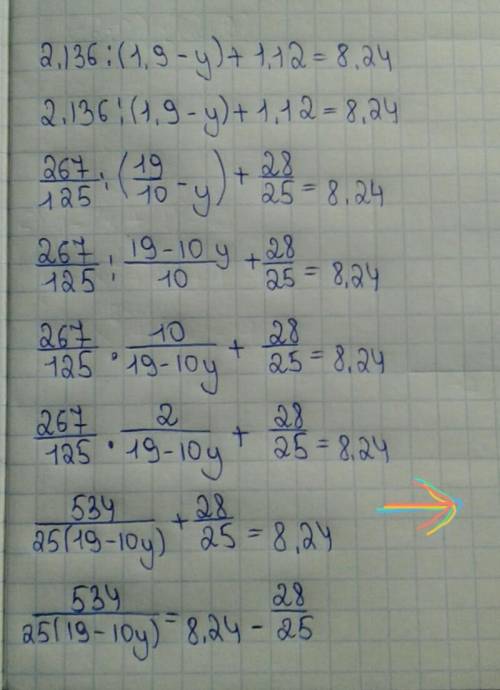 2,136:(1,9-y)+1,12=8,24
2,136:(1,9-y)+1,12=8,24
267/125:(19/10-y)+28/25=8,24
267/125:(19-10y)/10+28/25=8,24
267/125·10/(19-10y)+28/25=8,24
267/125·2/(19-10y)+28/25=8,24
534/25(19-10y)+28/25=8,24
534/25(19-10y)=8,24-28/25